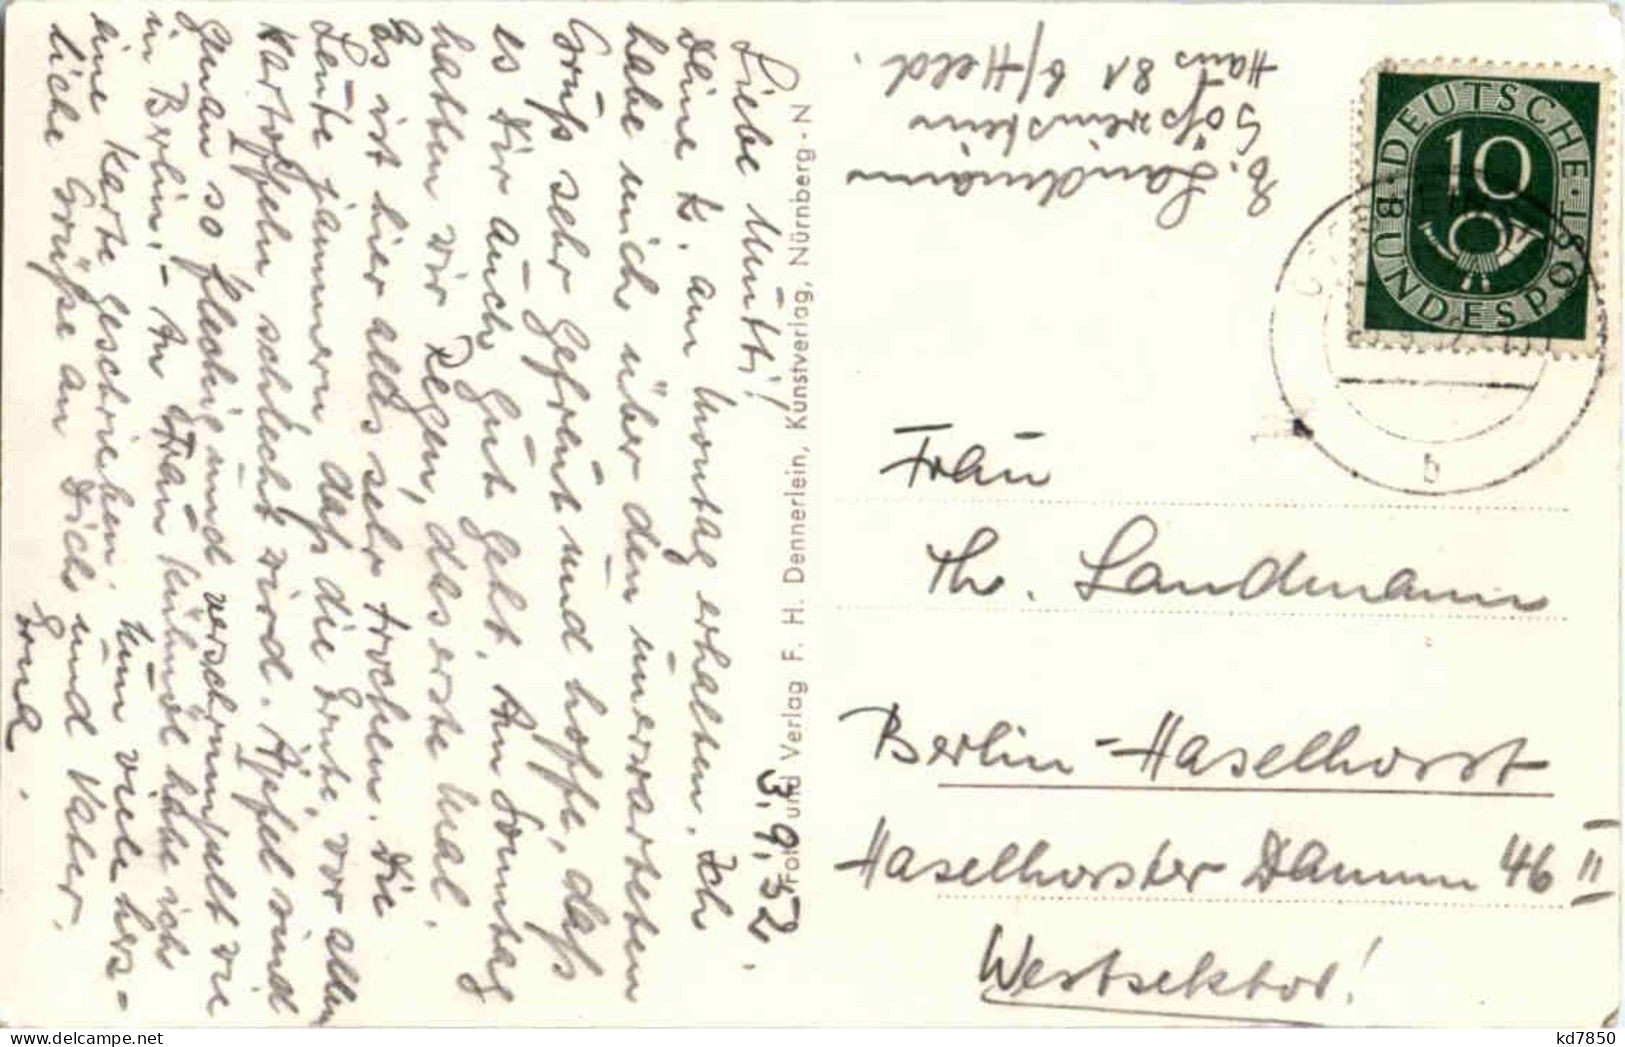 3.9.52.
Liebe Mutti!
Deine K. am Montag erhalten. Ich
habe mich über den unerwarteten
Gruß sehr gefreut und hoffe, daß
es Dir auch gut geht. Am Sonntag
hatten wir Regen, das erste Mal.
Es ist hier alles sehr trocken. Die
Leute jammern, daß die Ernte, vor allem
Kartoffeln, schlecht wird. Äpfel sind
genau so fleckig und verschrumpelt wie
in Berlin. - An Frau Kühnöl habe ich
eine Karte geschrieben. Nun viele herz-
liche Grüße an Dich und Vater.
Erna.
Foto und Verlag F. H. Dennerlein, Kunstverlag, Nürnberg - N
Landmann
Gößweinstein
Haus 81 b/Held.
DEUTSCHE BUNDESPOST
10
b
Frau
Th. Landmann
Berlin-Haselhorst
Haselhorster Damm 46 II
Westsektor!
kd7850